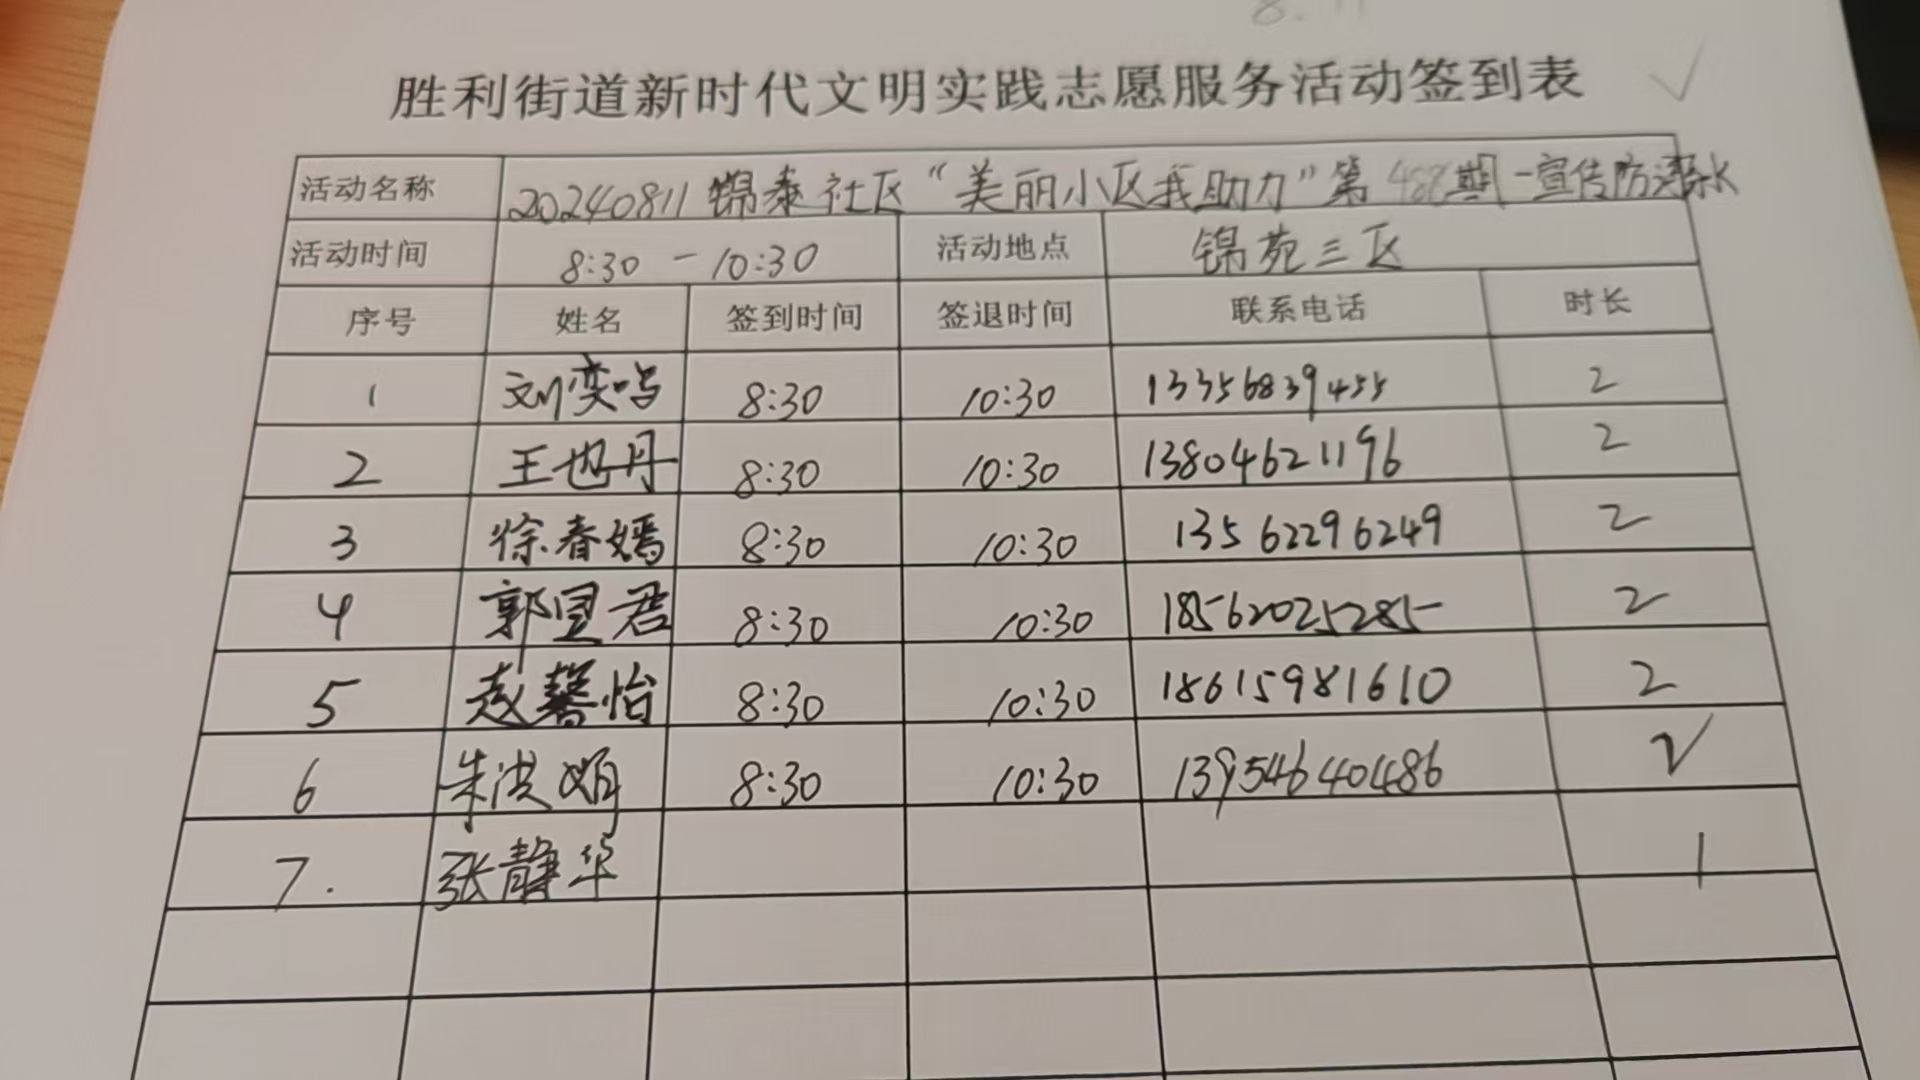 8.11
胜利街道新时代文明实践志愿服务活动签到表
活动名称 20240811锦泰社区“美丽小区我助力”第488期-宣传防溺水
活动时间 8:30-10:30 活动地点 锦苑三区
序号 姓名 签到时间 签退时间 联系电话 时长
1 刘奕鸣 8:30 10:30 13356839455 2
2 王也丹 8:30 10:30 13804621196 2
3 徐春嫣 8:30 10:30 13562296249 2
4 郭昱君 8:30 10:30 18562025285 2
5 赵馨怡 8:30 10:30 18615981610 2
6 朱洪娟 8:30 10:30 13954640486 2
7. 张静华 1